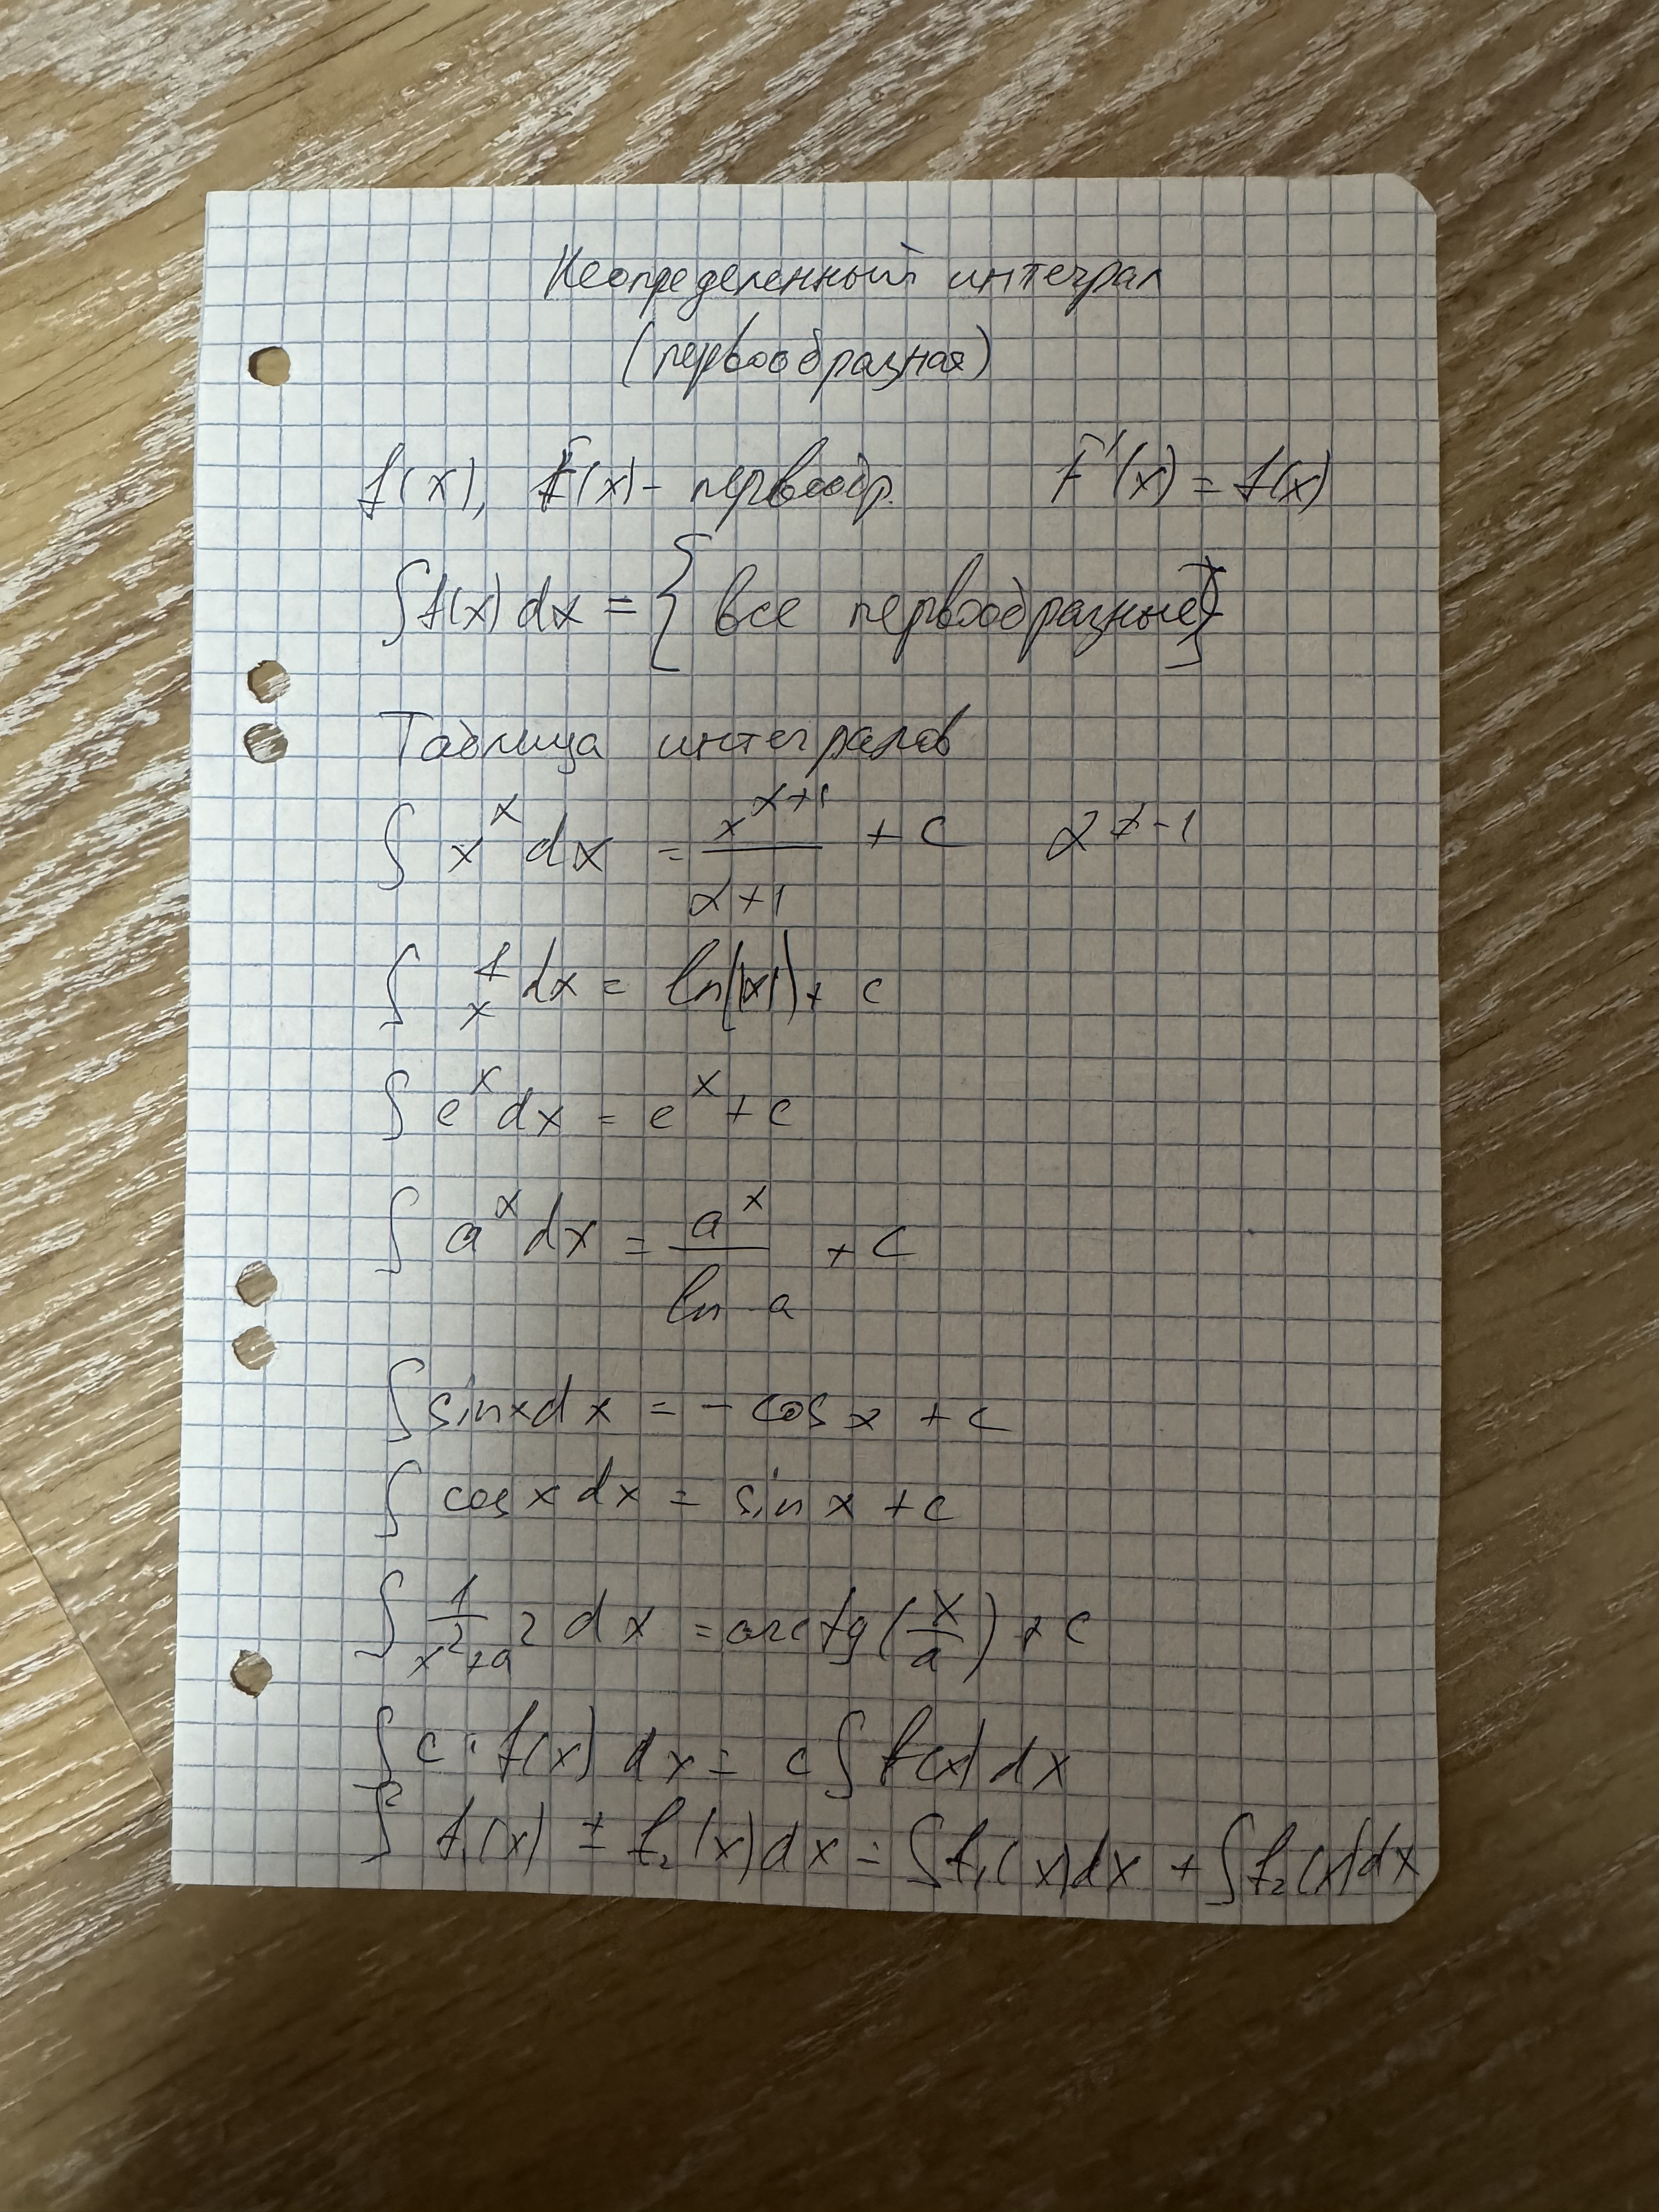 Неопределенный интеграл
(первообразная)
f(x), F(x) - первообр. F'(x) = f(x)
∫f(x)dx = {все первообразные}
Таблица интегралов
∫ x^α dx = x^(α+1)/(α+1) + C α ≠ -1
∫ 1/x dx = ln(|x|) + C
∫ e^x dx = e^x + C
∫ a^x dx = a^x/ln a + C
∫ sin x dx = - cos x + C
∫ cos x dx = sin x + C
∫ 1/(x²+a²) dx = arctg(x/a) + C
∫ c · f(x) dx = c ∫ f(x) dx
∫ f₁(x) ± f₂(x) dx = ∫ f₁(x) dx + ∫ f₂(x) dx